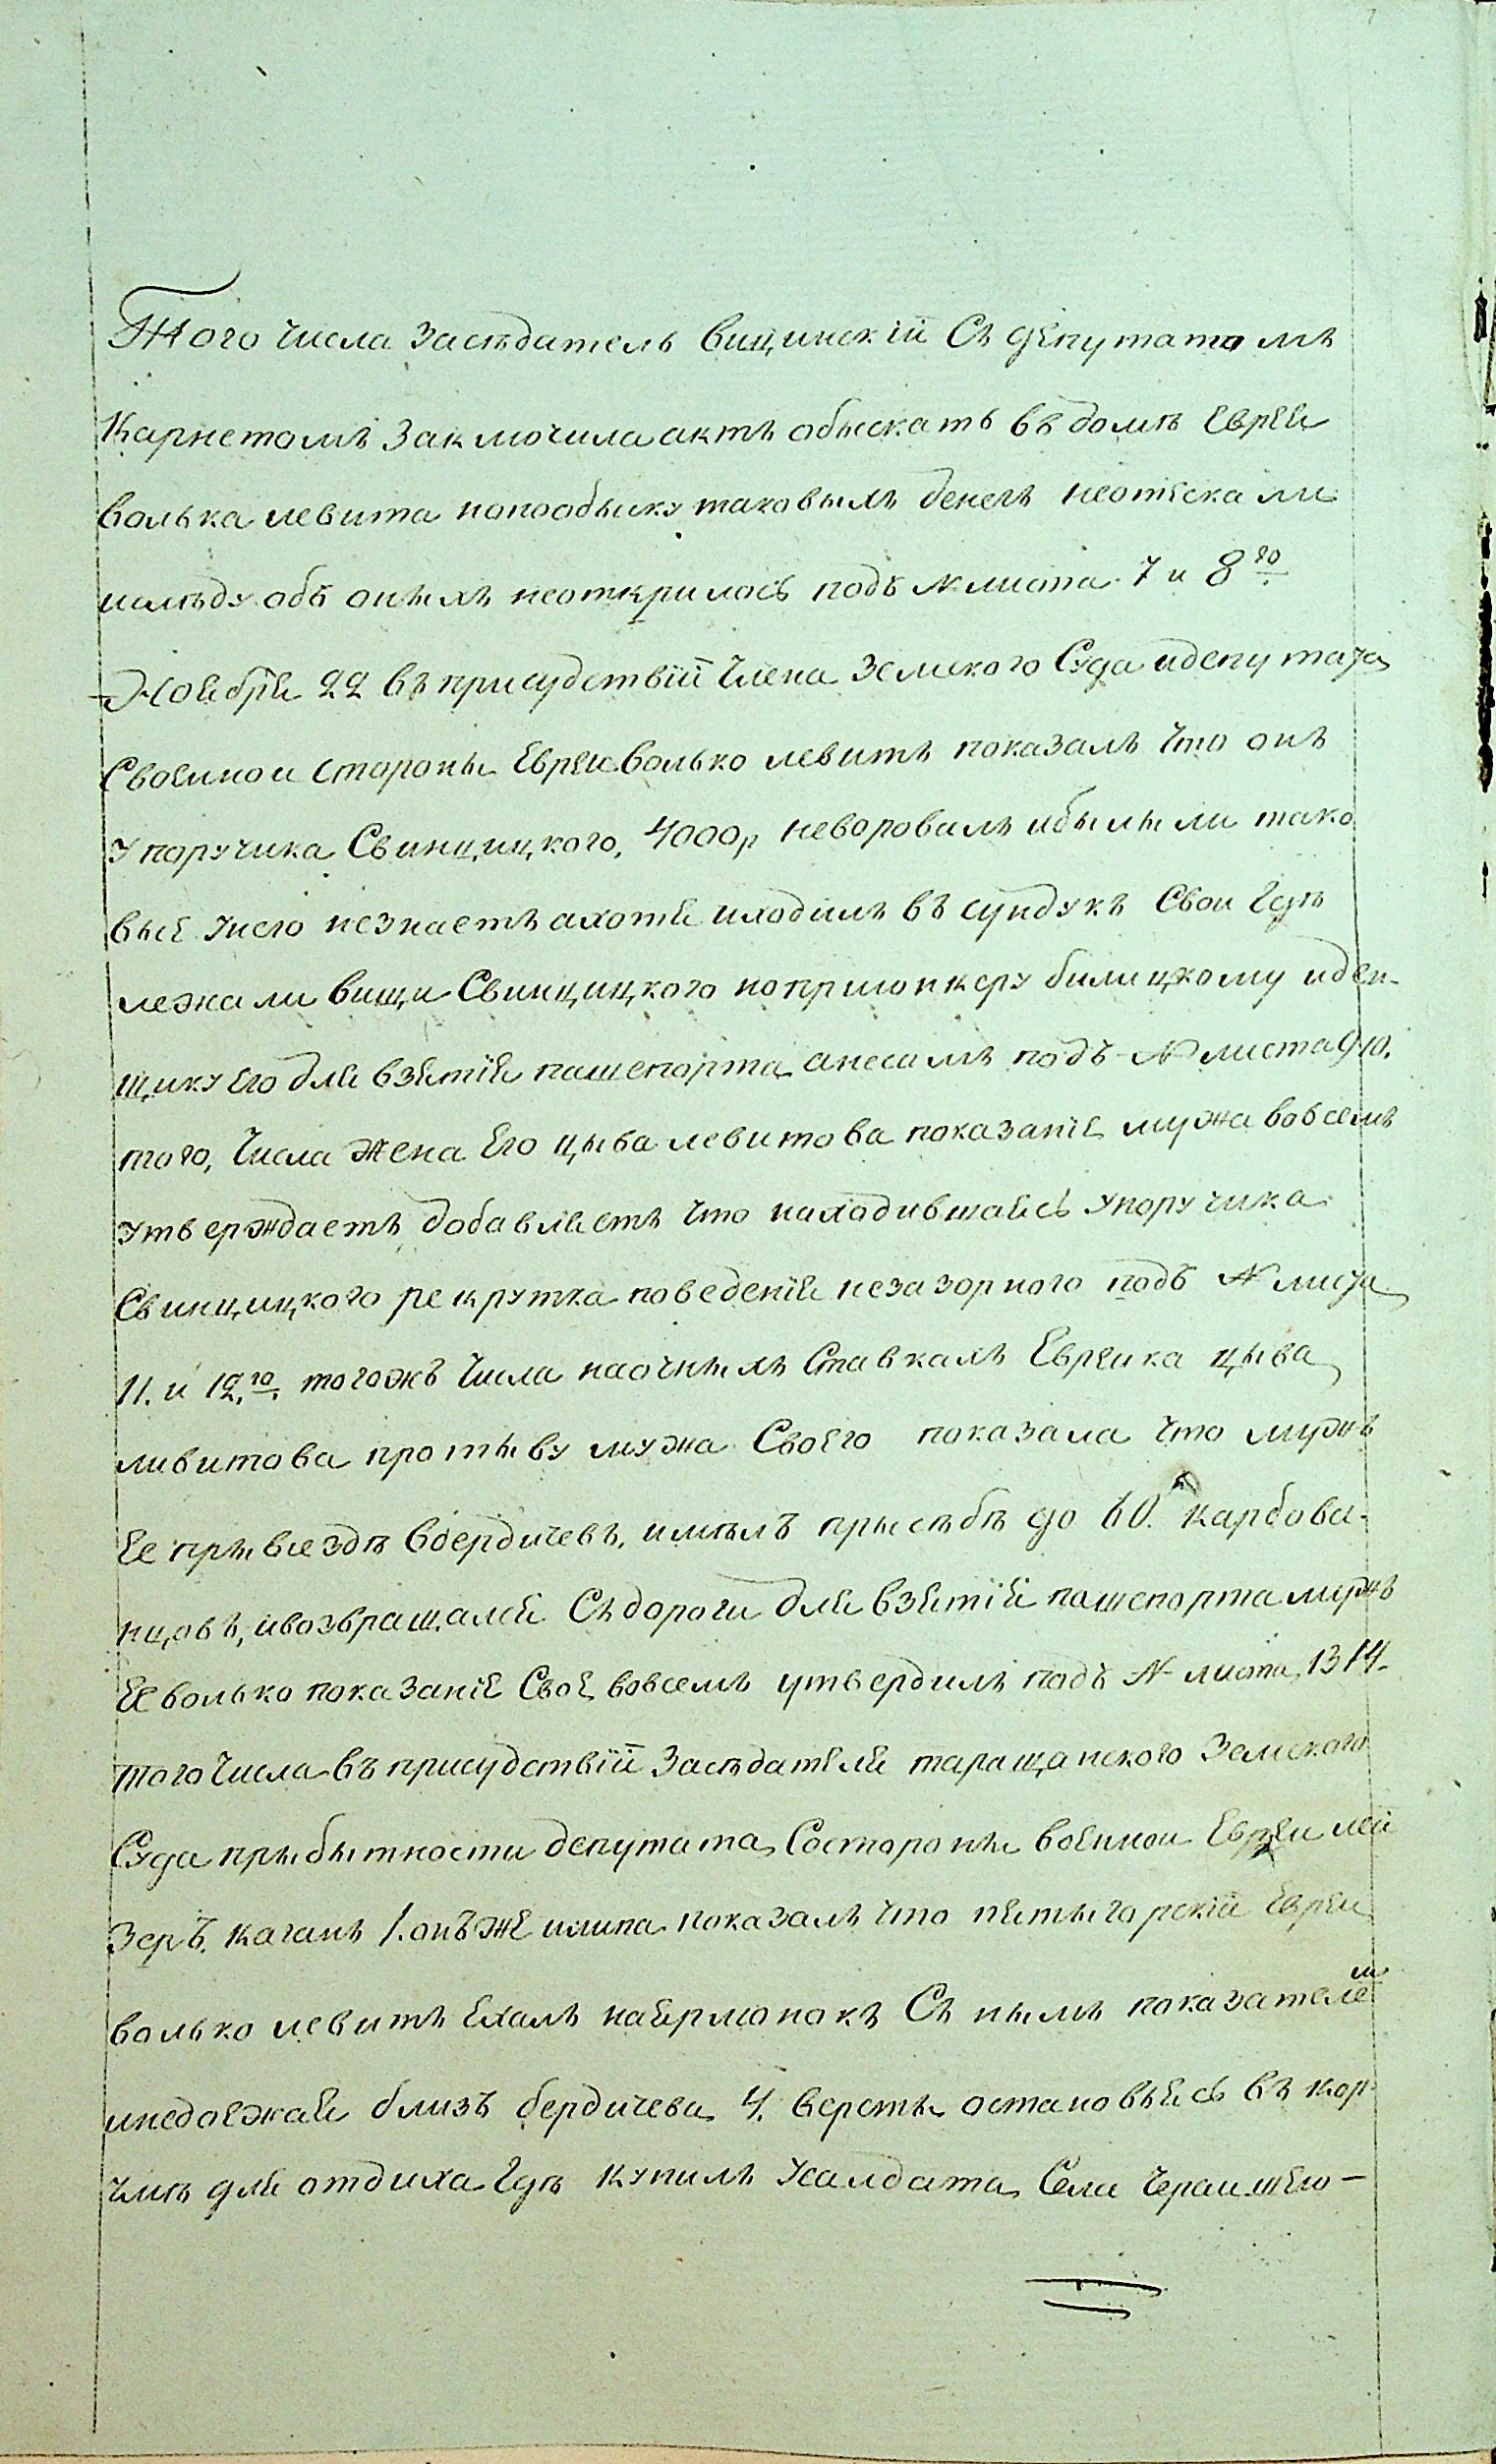 Того числа засѣдатель вищинскій съ депутатомъ
Карнетомъ заключила актъ обыскать въ домѣ Еврея
волька левита нопообыску таковыхъ денегъ неотыскали
ислѣду объ оныхъ неоткрилось подъ № листа 7 и 8го
Ноября 22 въ присудствіи Члена Земского Суда идепутата
Своеиной стороны Еврей волько левитъ показалъ что онъ
у поручика Свинцицкого, 4000р неворовалъ ибылыли тако
выя унего незнаетъ ахотя иходилъ въ сундукъ Свой Гдѣ
лежали вищи Свинцицкого нопрыюнкеру билицкому иден-
щику Его для взятія пашепорта анесамъ подъ № листа 9 10.
того, Числа Жена Его цыва левитова показаніе мужа вовсемъ
утверждаетъ добавляетъ что находившаясь упоручика
Свинцицкого рекрутка поведенія незазорного подъ № листа
11. и 12.го тогожъ Числа наочныхъ Ставкахъ Еврейка цыва
ливитова протыву мужа Своего показала что мужъ
Ее прывъездѣ Вбердичевъ, имѣлъ прысѣбѣ до 60. карбова-
нцовъ, ивозвращался Съдороги для взятія пашепорта мужъ
Ее волько показаніе Свое вовсемъ утвердилъ подъ № листа 13 14.
того Числа въ присудствіи Засѣдателя таращанского Земского
Суда прыбытности депутата Состороны военной Еврей лей
зеръ каганъ /.онъже шпа показалъ что пятыгорскій Еврей
волько левитъ Ехалъ наярмонокъ Съ нымъ показателем
инедоежая близъ бердичева 4. версты остановьясь въ кор
чмѣ для отдиха Гдѣ купилъ усалдата Села